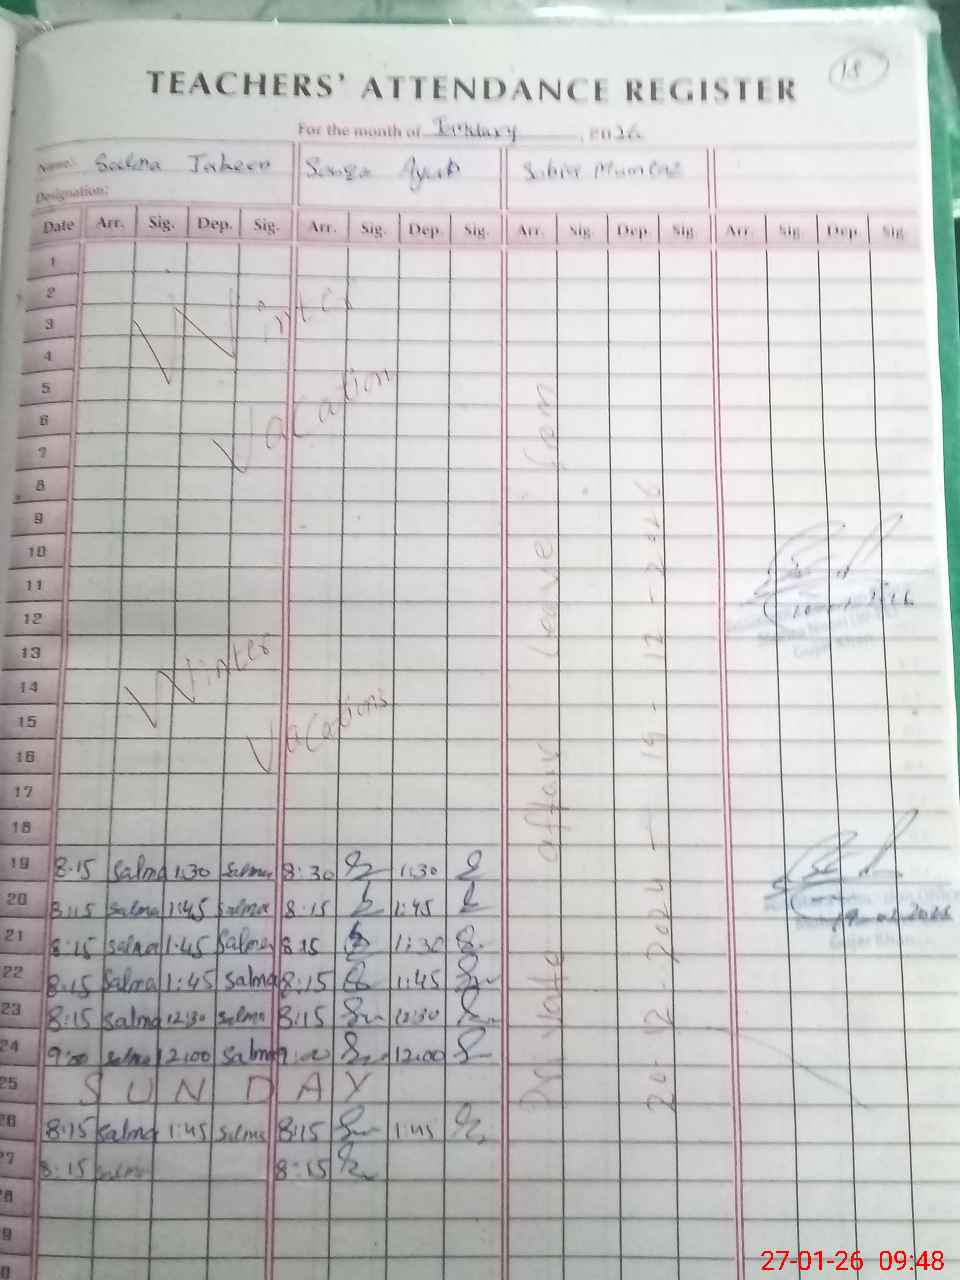 18
TEACHERS' ATTENDANCE REGISTER
For the month of January, 2026
Name: Salma Ayub Sabir Mumtaz
Designation:
Date Arr. Sig. Dep. Sig. Arr. Sig. Dep. Sig. Arr. Sig. Dep. Sig Arr. Sig Dep. Sig
1
2
3
4
5
6
7
8
9
10
11
12
13
14
15
16
17
18
Winter
Vacation
Winter
Vacations
leave from
20-12-2024 - 19-12-2026
Gujar Khan
19 8:15 Salma 1:30 Salma 8:30 1:30
20 8:15 Salma 1:45 Salma 8:15 1:45
21 8:15 Salma 1:45 Salma 8:15 1:30
22 8:15 Salma 1:45 Salma 8:15 1:45
23 8:15 Salma 12:30 Salma 8:15 12:30
24 9:00 Salma 12:00 Salma 9:00 12:00
25 SUNDAY
26 8:15 Salma 1:45 Salma 8:15 1:45
27 8:15 Salma 8:15
28
Gujar Khan
27-01-26 09:48